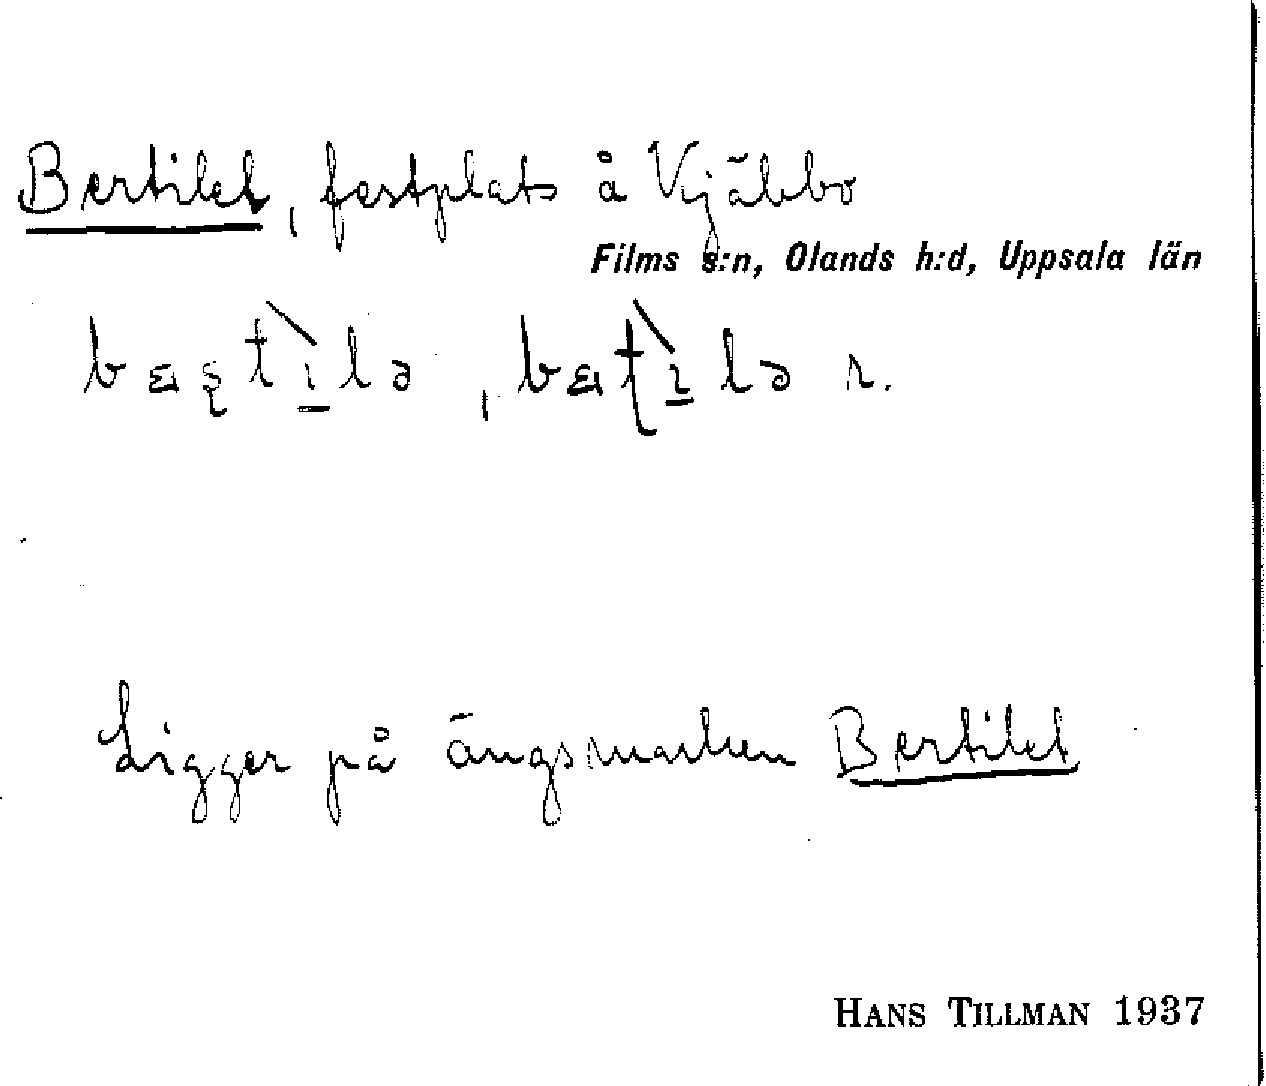 Bertilet, festplats å Vijäbbo
Films s:n, Olands h:d, Uppsala län
Ligger på ängsmarken Bertilet
HANS TILLMAN 1937